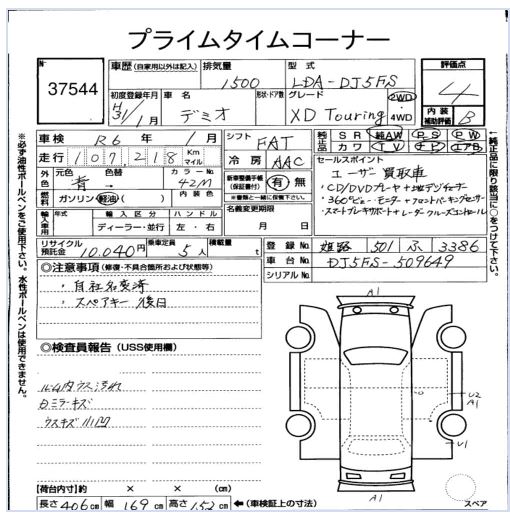 プライムタイムコーナー
No.
37544
車歴 (自家用以外は記入)
排気量
1500
型式
LDA-DJ5FS
評価点
4
初度登録年月
H31/1月
車名
デミオ
形状・ドア数
グレード
XD Touring
2WD
4WD
内装
補助評価
B
車検 R6年 1月
シフト
FAT
純正品
SR
純AW
PS
PW
カワ
TV
ナビ
エアB
走行 107,218 Km
マイル
冷房
AAC
外色
元色
青
色替
→
カラーNo.
42M
燃料
ガソリン・軽油・( )
内装色
新車整備手帳
(保証書付)
有・無
※書類と一緒に保管して下さい。
セールスポイント
ユーザー買取車
・CD/DVDプレーヤ+地デジチューナー
・360°ビューモニター+フロントパーキングセンサー
・スマートブレーキサポート+レーダークルーズコントロール
輸入車用
年式
輸入区分
ディーラー・並行
ハンドル
左・右
名義変更期限
月 日
リサイクル
預託金
10,040円
乗車定員
5人
積載量
t
登録No.
姫路 501 ふ 3386
車台No.
DJ5FS-509649
シリアルNo.
◎注意事項 (修復・不具合箇所および状態等)
・自社名変済
・スペアキー後日
◎検査員報告 (USS使用欄)
ル、内ウス汚れ
白ミラーキズ
ウスキズ小凹
A1
U2
A1
U1
A1
スペア
【荷台内寸】 約 × × (cm)
長さ 406cm 幅 169cm 高さ 152cm ←(車検証上の寸法)
※必ず油性ボールペンをご使用下さい。水性ボールペンは使用できません。
↑純正品に限り該当に○をつけて下さい。